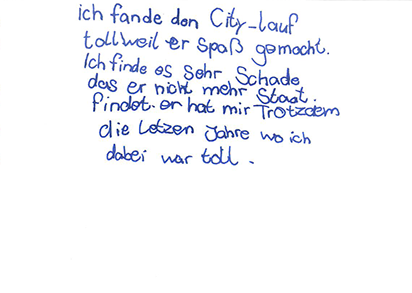 ich fande den City-lauf
tollweil er Spaß gemacht.
Ich finde es sehr Schade
das er nicht mehr Staat.
findet. er hat mir Trotzdem
die letzen Jahre wo ich
dabei war toll.